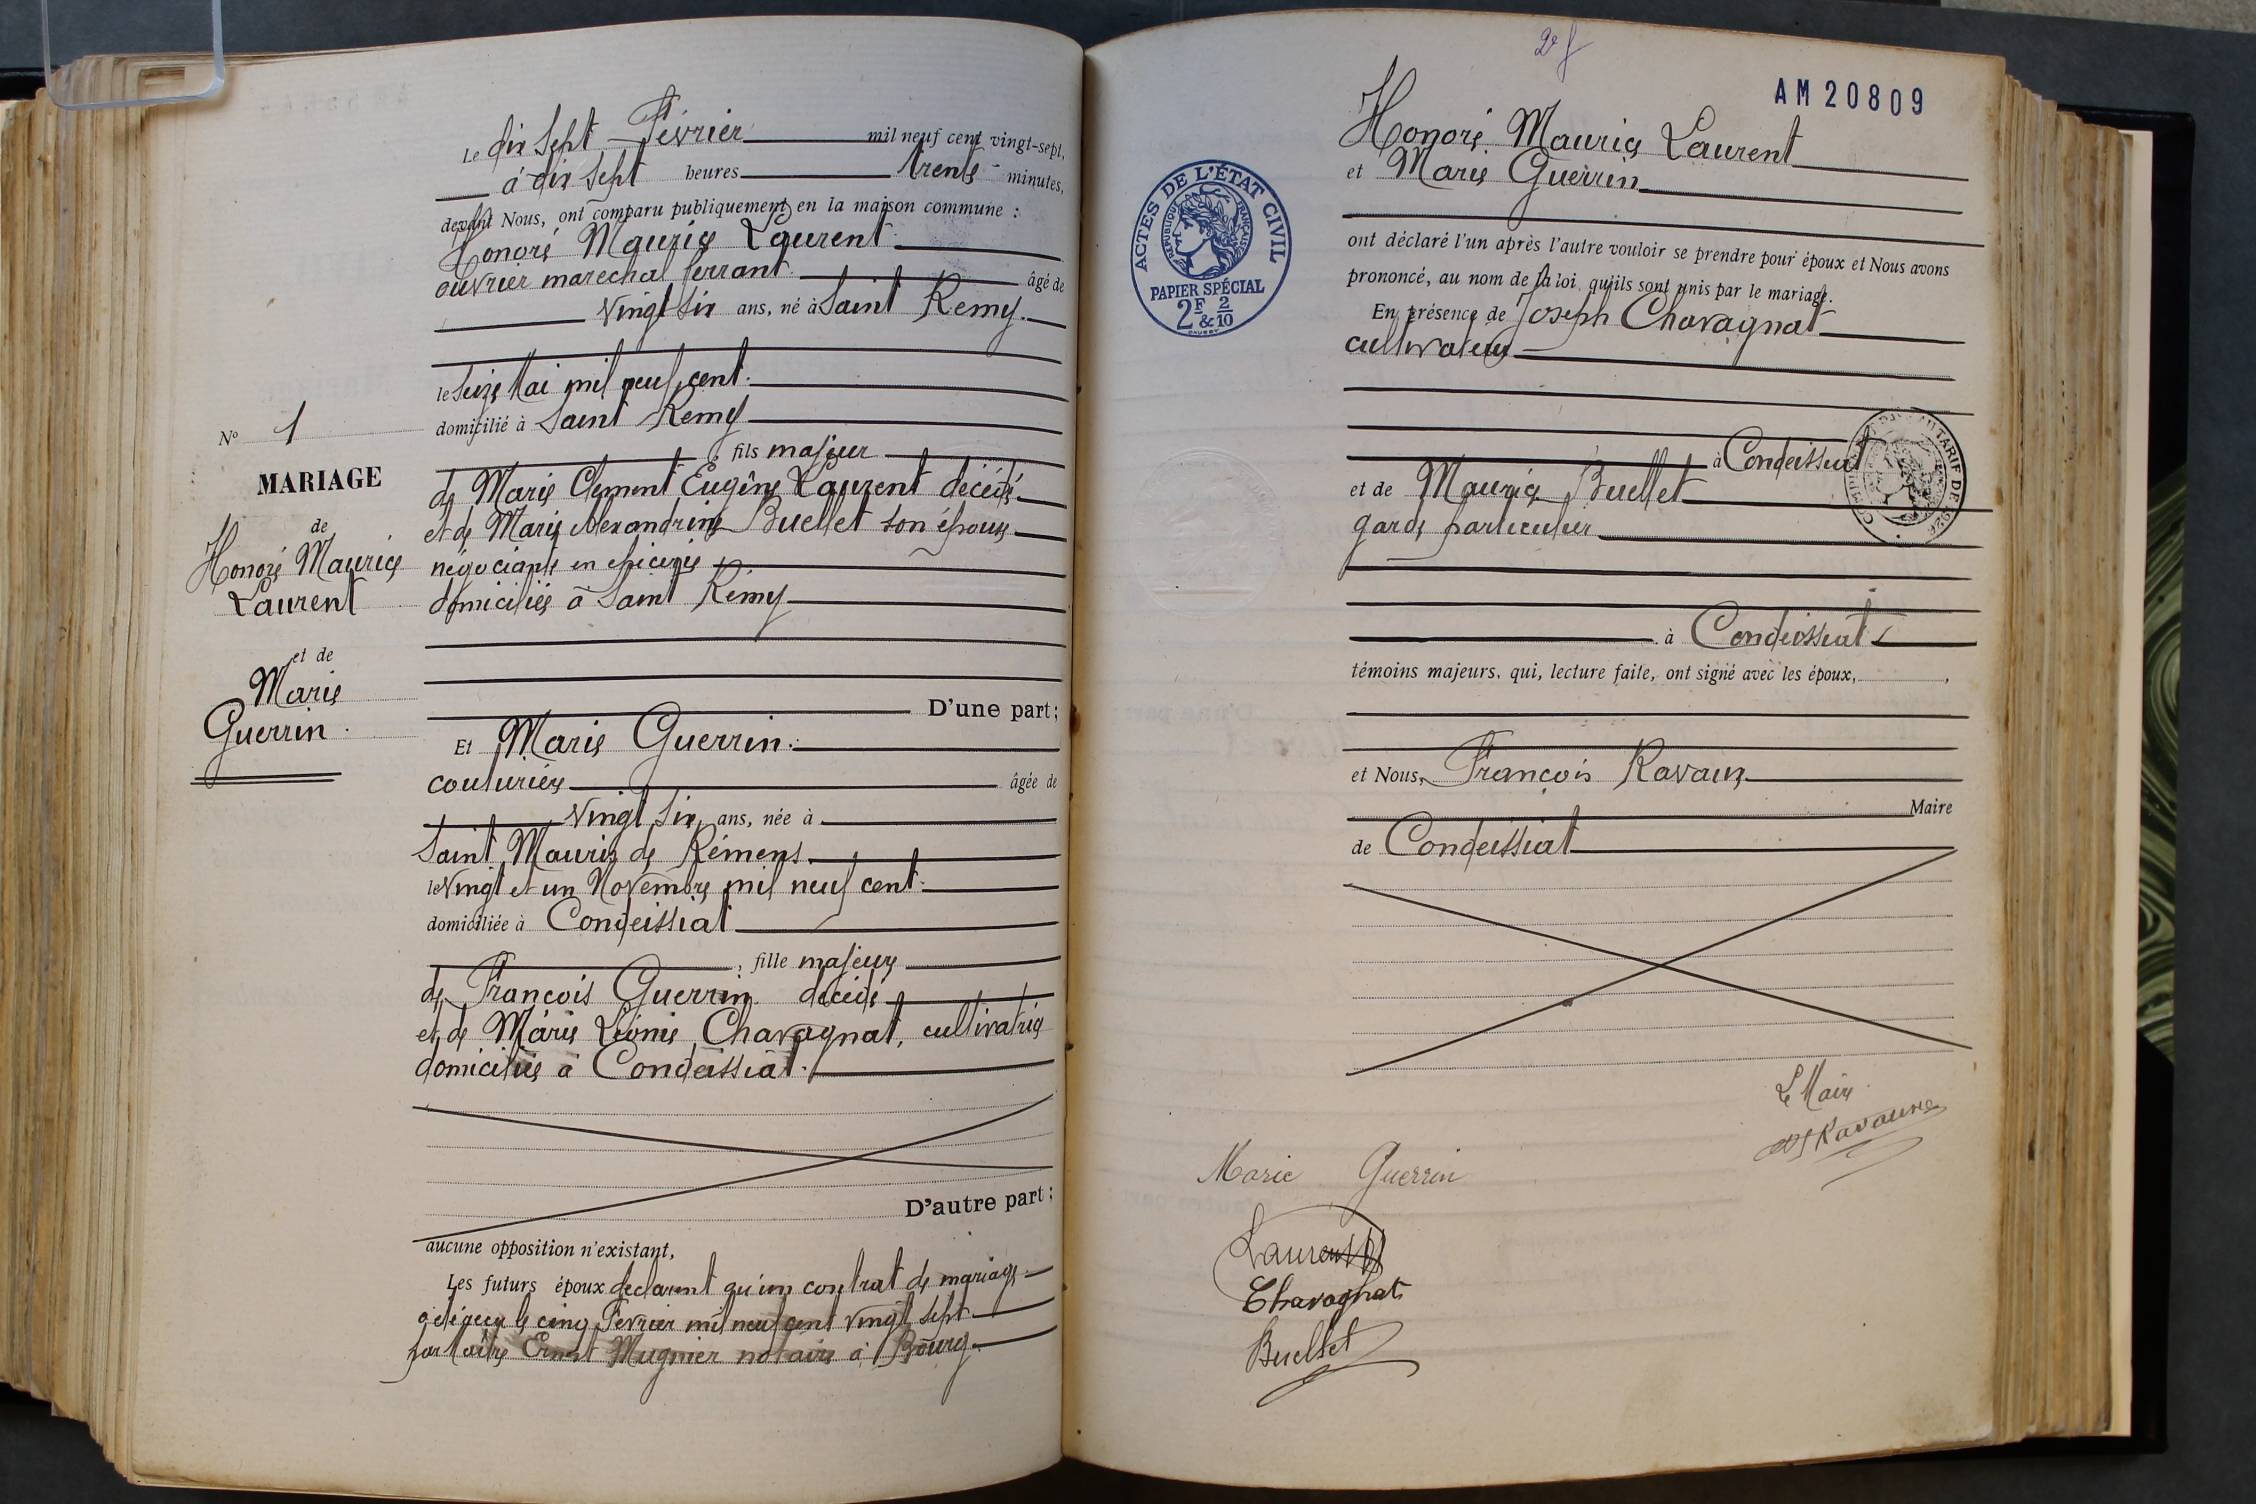 Le dix sept Février mil neuf cent vingt-sept,
à dix sept heures trente minutes,
devant Nous, ont comparu publiquement en la maison commune :
Honoré Maurice Laurent
ouvrier maréchal ferrant âgé de
vingt six ans, né à Saint Remy.
le seize Mai mil neuf cent.
domicilié à Saint Remy
, fils majeur
de Marie Clement Eugène Laurent décédé
et de Marie Alexandrine Buellet son épouse
négociante en épicerie
domiciliés à Saint Rémy
D'une part ;
Et Marie Guerrin.
couturière âgée de
vingt six ans, née à
Saint Maurice de Rémens
le vingt et un Novembre mil neuf cent.
domiciliée à Condeissiat
, fille majeure
de François Guerrin décédé
et de Marie Léonie Chavagnat, cultivatrice
domiciliée à Condeissiat.
D'autre part ;
aucune opposition n'existant,
Les futurs époux déclarent qu'un contrat de mariage
a été reçu le cinq Février mil neuf cent vingt sept
par Maître Ernest Mugnier notaire à Bourg
N° 1
MARIAGE
de
Honoré Maurice
Laurent
et de
Marie
Guerrin.
AM 20809
ACTES DE L'ÉTAT CIVIL
RÉPUBLIQUE FRANÇAISE
PAPIER SPÉCIAL
2F & 2/10
Honoré Maurice Laurent
et Marie Guerrin
ont déclaré l'un après l'autre vouloir se prendre pour époux et Nous avons
prononcé, au nom de la loi, qu'ils sont unis par le mariage.
En présence de Joseph Chavagnat
cultivateur
à Condeissiat
et de Maurice Buellet
garde particulier
à Condeissiat
témoins majeurs, qui, lecture faite, ont signé avec les époux, ,
et Nous, François Ravaux
Maire
de Condeissiat
Le Maire
Marie Guerrin
Laurent
Chavagnat
Buellet